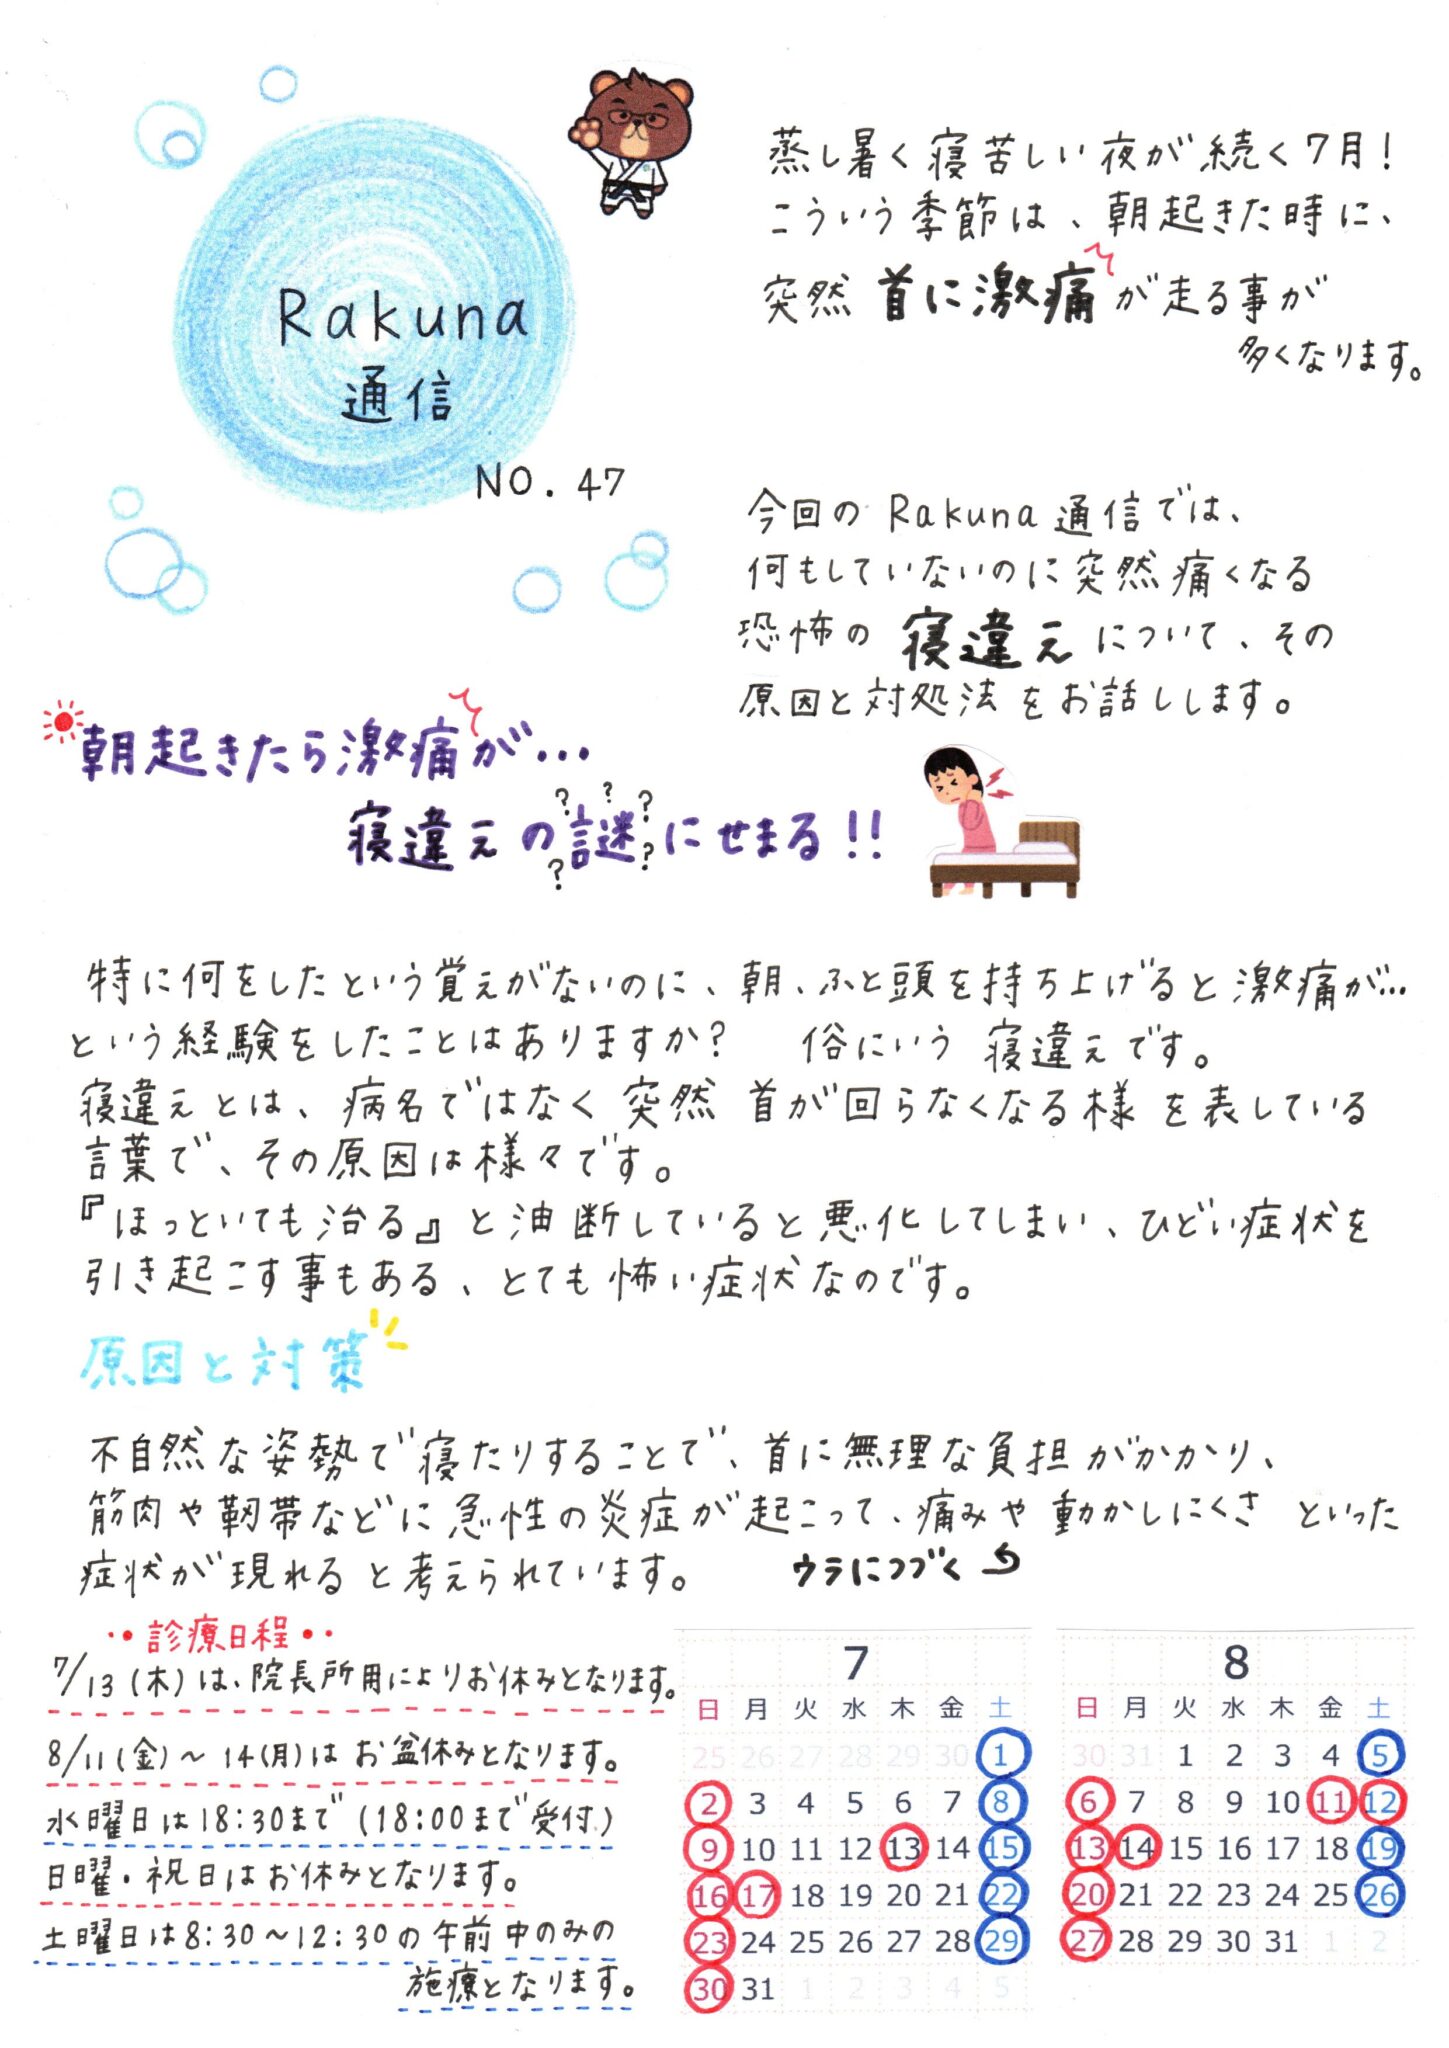 Rakuna
通信
NO. 47
蒸し暑く寝苦しい夜が続く7月！
こういう季節は、朝起きた時に、
突然 首に激痛が走る事が
多くなります。
今回の Rakuna 通信では、
何もしていないのに突然痛くなる
恐怖の 寝違え について、その
原因と対処法をお話しします。
朝起きたら激痛が…
寝違えの謎にせまる!!
? ? ? ? ?
特に何をしたという覚えがないのに、朝、ふと頭を持ち上げると激痛が…
という経験をしたことはありますか？ 俗にいう 寝違えです。
寝違えとは、病名ではなく突然 首が回らなくなる様を表している
言葉で、その原因は様々です。
『ほっといても治る』と油断していると悪化してしまい、ひどい症状を
引き起こす事もある、とても怖い症状なのです。
原因と対策
不自然な姿勢で寝たりすることで、首に無理な負担がかかり、
筋肉や靭帯などに急性の炎症が起こって、痛みや動かしにくさ といった
症状が現れると考えられています。 ウラにつづく
診療日程
7/13(木)は、院長所用によりお休みとなります。
8/11(金)～14(月)は お盆休みとなります。
水曜日は18:30まで(18:00まで受付)
日曜・祝日はお休みとなります。
土曜日は8:30～12:30の午前中のみの
施療となります。
7
日 月 火 水 木 金 土
25 26 27 28 29 30 1
2 3 4 5 6 7 8
9 10 11 12 13 14 15
16 17 18 19 20 21 22
23 24 25 26 27 28 29
30 31 1 2 3 4 5
8
日 月 火 水 木 金 土
30 31 1 2 3 4 5
6 7 8 9 10 11 12
13 14 15 16 17 18 19
20 21 22 23 24 25 26
27 28 29 30 31 1 2